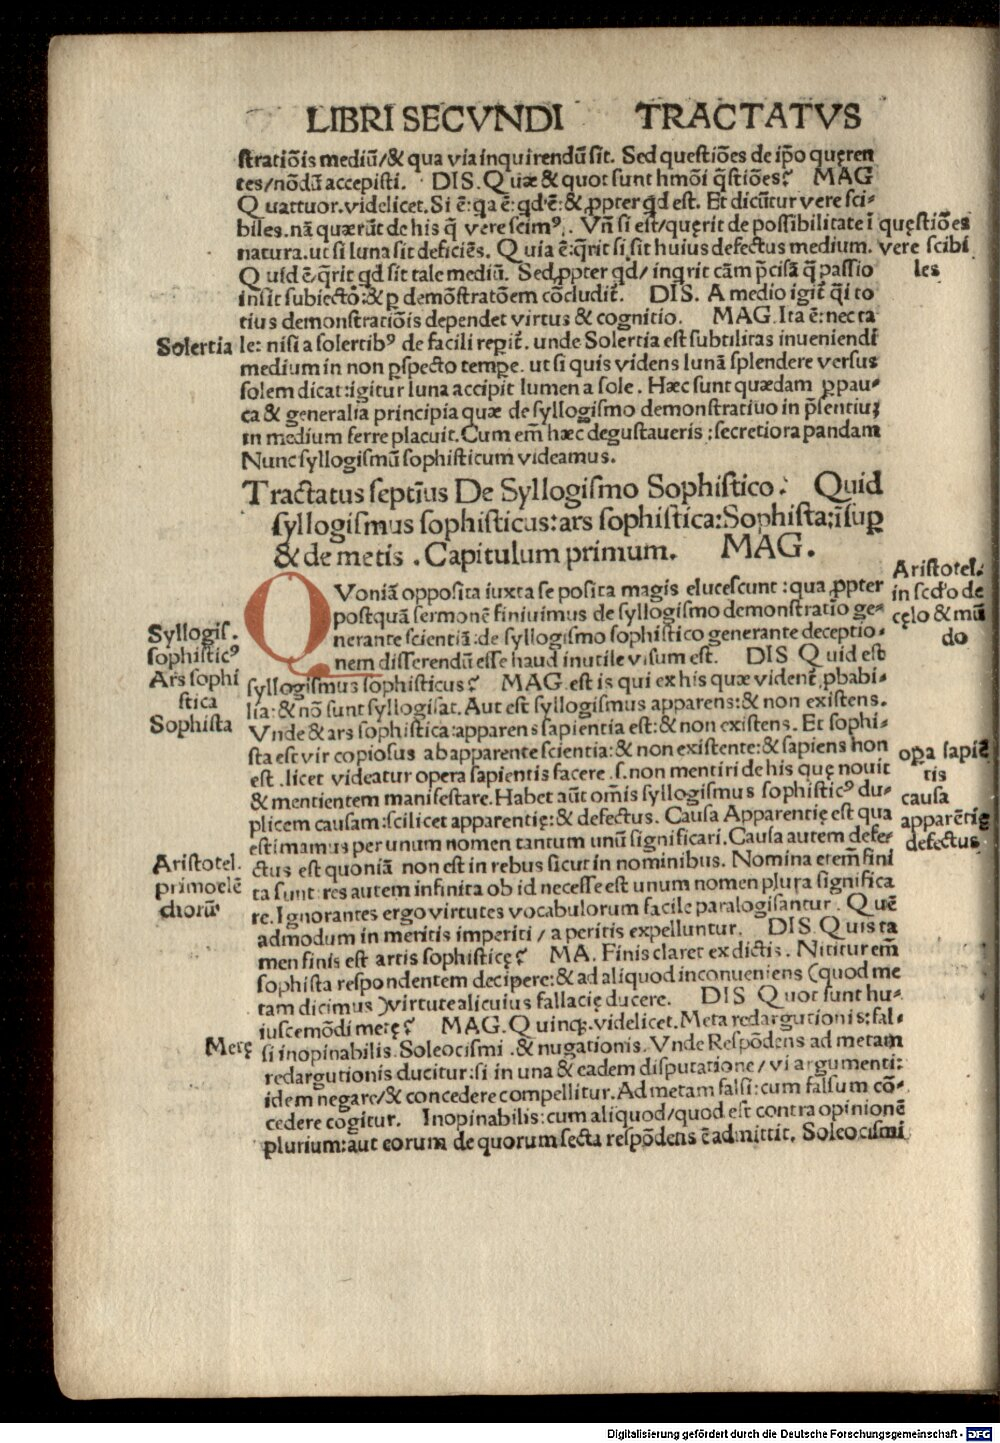 LIBRI SECVNDI TRACTATVS
ſtratiõis mediũ/& qua via inquirendũ ſit. Sed queſtiões de ip̃o quęren
tes/nõdũ accepiſti. DIS. Quæ & quot ſunt hmõi q̃ſtiões? MAG
Quattuor.videlicet. Si ẽ: qa ẽ: qd' ẽ: & ꝓpter qd eſt. Et dicũtur vere ſci-
biles. nã quærũt de his q̃ vere ſcimꝰ. Vñ ſi eſt/quęrit de poſſibilitate ĩ
natura. ut ſi luna ſit deficiẽs. Quia ẽ: q̃rit ſi ſit huius defectus medium.
Quid ẽ q̃rit qd ſit tale mediũ. Sed ꝓpter qd/ inq̃rit cãm p̃ciſã q̃ paſſio
inſit ſubiecto: & ꝑ demõſtratõem cõcludit̃. DIS. A medio igit̃ q̃i to
tius demonſtratiõis dependet virtus & cognitio. MAG. Ita ẽ: nec ta
quęſtiões
vere ſcibi
les
Solertia
le: niſi a ſolertibꝰ de facili reꝑit̃. unde Solertia eſt ſubtilitas inueniendi
medium in non ꝑſpecto tempe. ut ſi quis videns lunã ſplendere verſus
ſolem dicat: igitur luna accipit lumen a ſole. Hæc ſunt quædam ꝓpau-
ca & generalia principia quæ de ſyllogiſmo demonſtratiuo in p̃ſentiuꝫ
in medium ferre placuit. Cum em̃ hæc deguſtaueris: ſecretiora pandam
Nunc ſyllogiſmũ ſophiſticum videamus.
Tractatus ſeptĩus De Syllogiſmo Sophiſtico: Quid
ſyllogiſmus ſophiſticus: ars ſophiſtica: Sophiſta: ĩſuꝑ
& de metis. Capitulum primum. MAG.
QVoniã oppoſita iuxta ſe poſita magis eluceſcunt: qua ꝓpter
poſtquã ſermonẽ finiuimus de ſyllogiſmo demonſtratio ge-
nerante ſcientiã: de ſyllogiſmo ſophiſtico generante deceptio-
nem diſſerendũ eſſe haud inutile viſum eſt. DIS Quid eſt
Ariſtotel.
in ſcd'o de
cęlo & mũ
do
Syllogiſ.
ſophiſticꝰ
Ars ſophi
ſtica
Sophiſta
ſyllogiſmus ſophiſticus? MAG. eſt is qui ex his quæ vident̃ ꝓbabi-
lia: & nõ ſunt ſyllogiſat. Aut eſt ſyllogiſmus apparens: & non exiſtens.
Vnde & ars ſophiſtica: apparens ſapientia eſt: & non exiſtens. Et ſophi-
ſta eſt vir copioſus ab apparente ſcientia: & non exiſtente: & ſapiens non
eſt. licet videatur opera ſapientis facere. ſ. non mentiri de his quę nouit
& mentientem manifeſtare. Habet aũt om̃is ſyllogiſmus ſophiſticꝰ du-
plicem cauſam: ſcilicet apparentię: & defectus. Cauſa Apparentię eſt qua
eſtimamus per unum nomen tantum unũ ſignificari. Cauſa autem defe-
opa ſapiẽ
tis
cauſa
apparẽtię
defectus
Ariſtotel.
primo elẽ
chorũ
ctus eſt quoniã non eſt in rebus ſicut in nominibus. Nomina etem̃ fini
ta ſunt: res autem infinita ob id neceſſe eſt unum nomen plura ſignifica
re. Ignorantes ergo virtutes vocabulorum facile paralogiſantur. Quẽ
admodum in meritis imperiti / a peritis expelluntur. DIS. Quis ta
men finis eſt artis ſophiſticę? MA. Finis claret ex dictis. Nititur em̃
ſophiſta reſpondentem decipere: & ad aliquod inconueniens (quod me
tam dicimus) virtute alicuius fallacię ducere. DIS Quot ſunt hu-
iuſcemõdi metę? MAG. Quinqꝫ. videlicet. Meta redargutionis: fal-
Metę
ſi inopinabilis. Soleociſmi. & nugationis. Vnde Reſpõdens ad metam
redargutionis ducitur: ſi in una & eadem diſputatione / vi argumenti:
idem negare/& concedere compellitur. Ad metam falſi: cum falſum cõ-
cedere cogitur. Inopinabilis: cum aliquod/quod eſt contra opinionẽ
plurium: aut eorum de quorum ſecta reſpõdens ẽ admittit. Soleociſmi
Digitalisierung gefördert durch die Deutsche Forschungsgemeinschaft - DFG